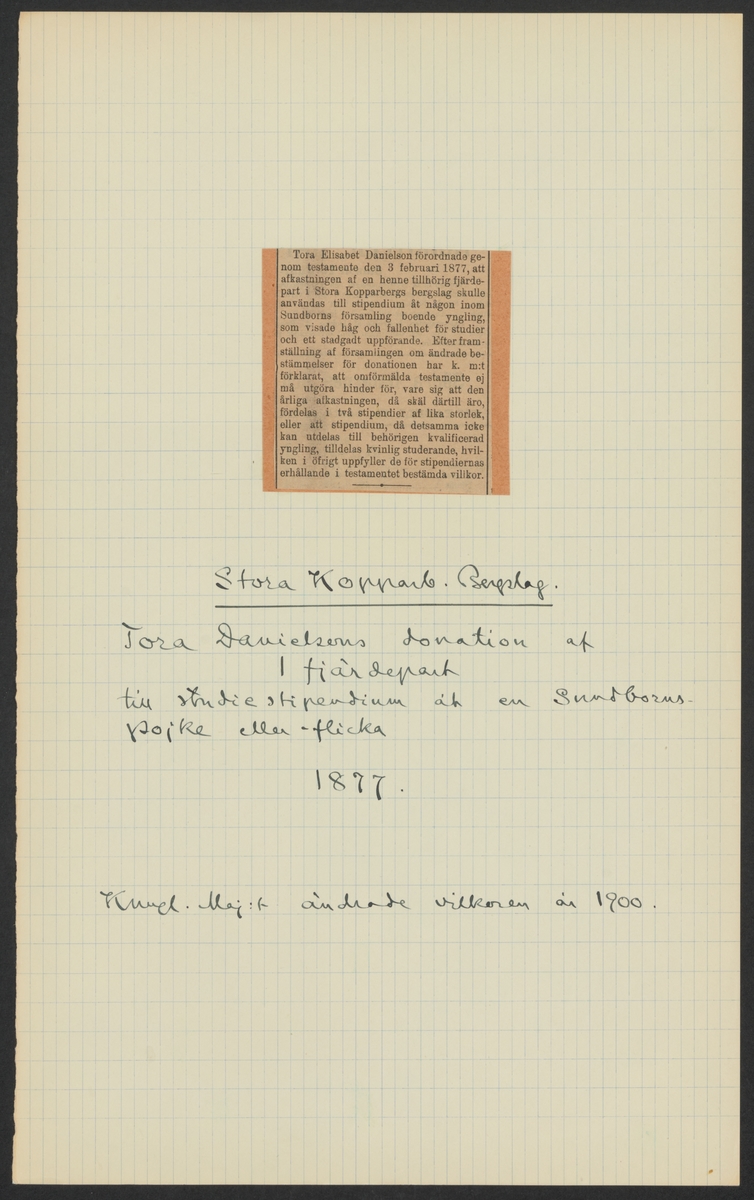 Tora Elisabet Danielson förordnade ge-
nom testamente den 3 februari 1877, att
afkastningen af en henne tillhörig fjärde-
part i Stora Kopparbergs bergslag skulle
användas till stipendium åt någon inom
Sundborns församling boende yngling,
som visade håg och fallenhet för studier
och ett stadgadt uppförande. Efter fram-
ställning af församlingen om ändrade be-
stämmelser för donationen har k. m:t
förklarat, att omförmälda testamente ej
må utgöra hinder för, vare sig att den
årliga afkastningen, då skäl därtill äro,
fördelas i två stipendier af lika storlek,
eller att stipendium, då detsamma icke
kan utdelas till behörigen kvalificerad
yngling, tilldelas kvinlig studerande, hvil-
ken i öfrigt uppfyller de för stipendiernas
erhållande i testamentet bestämda villkor.
Stora Kopparb. Bergslag.
Tora Danielsons donation af
1 fjärdepart
till studiestipendium åt en Sundborns-
pojke eller -flicka
1877.
Kungl. Maj:t ändrade vilkoren år 1900.